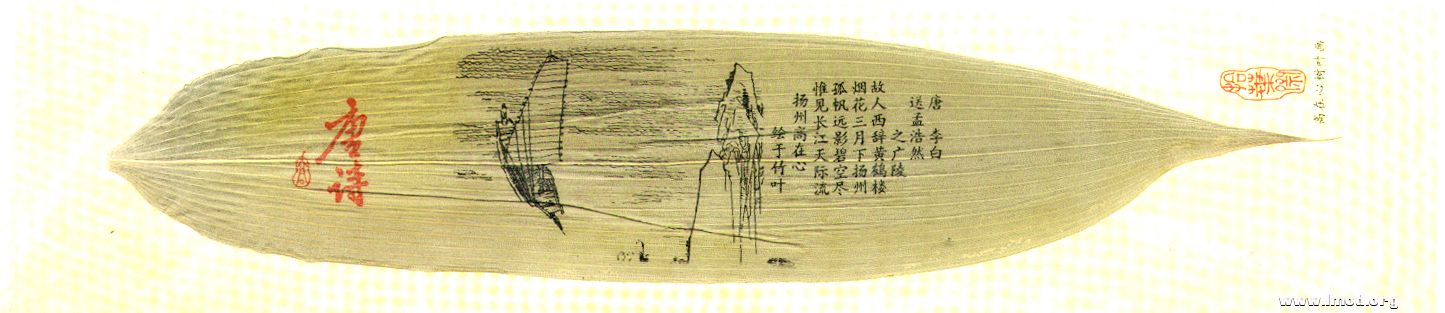 唐 李白
送孟浩然
之广陵
故人西辞黄鹤楼
烟花三月下扬州
孤帆远影碧空尽
惟见长江天际流
扬州高在心
绘于竹叶
唐诗
www.lmod.org